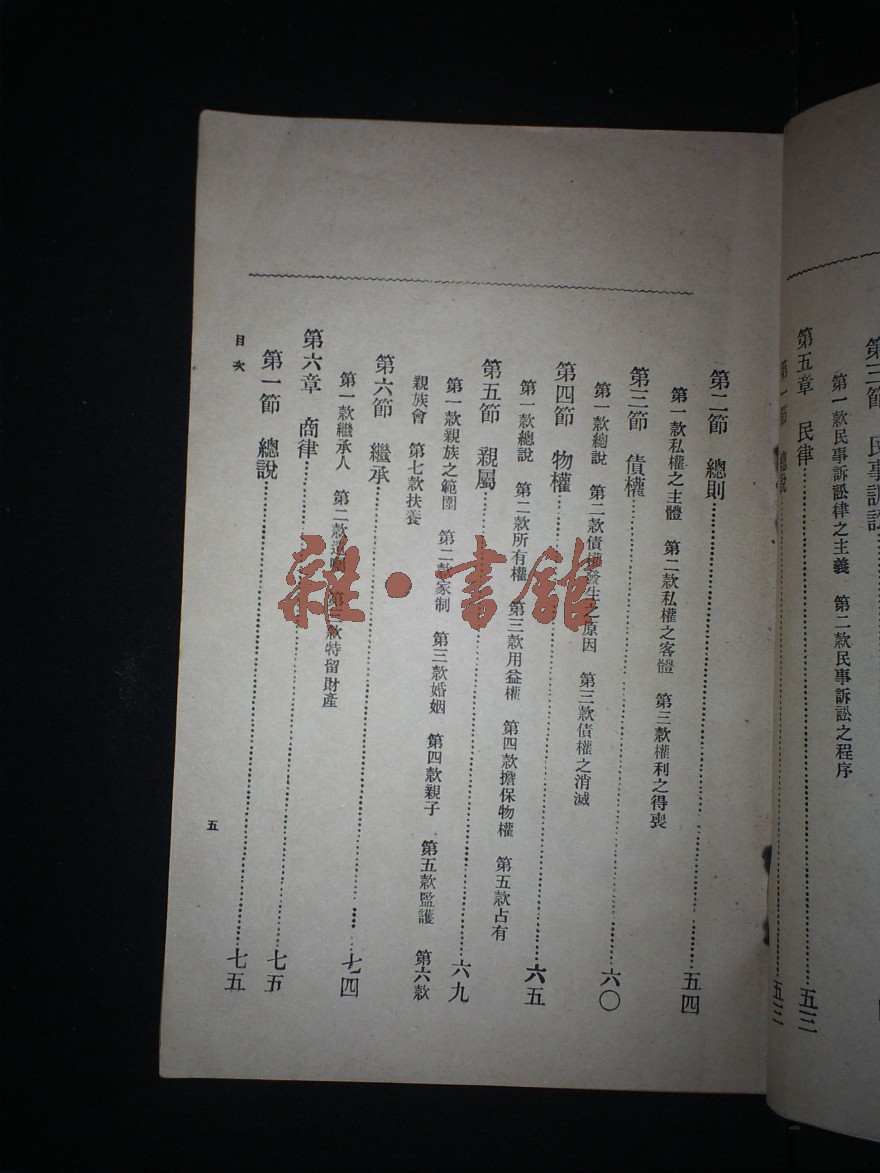 第三節 民事訴訟
第一款民事訴訟律之主義 第二款民事訴訟之程序
第五章 民律……五三
第一節 總說……五三
第二節 總則……五四
第一款私權之主體 第二款私權之客體 第三款權利之得喪
第三節 債權……六〇
第一款總說 第二款債權發生之原因 第三款債權之消滅
第四節 物權……六五
第一款總說 第二款所有權 第三款用益權 第四款擔保物權 第五款占有
第五節 親屬……六九
第一款親族之範圍 第二款家制 第三款婚姻 第四款親子 第五款監護 第六款
親族會 第七款扶養
第六節 繼承……七四
第一款繼承人 第二款遺 第三款特留財產
第六章 商律……七五
第一節 總說……七五
目次
五
雜·書館